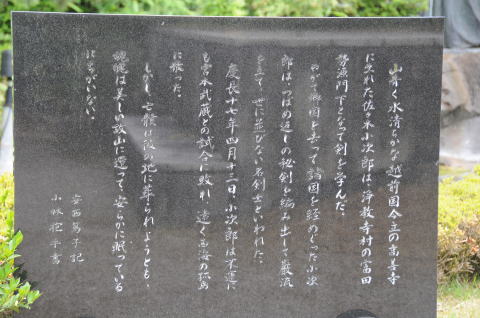 山青く水清らかな越前国今立の高善寺
に生れた佐々木小次郎は、浄教寺村の富田
勢源門下となって剣を学んだ。
やがて郷国を去って諸国を経めぐった小次
郎は、つばめ返しの秘剣を編み出して巌流
を立て、世に並びない名剣士といわれた。
慶長十七年四月十三日、小次郎は不運に
も宮本武蔵との試合に敗れ、遠く西海の孤島
に散った。
しかし、亡骸は彼の地に葬られようとも、
魂魄は美しい故山に還って、安らかに眠っている
にちがいない。
安西篤子記
小林 平書